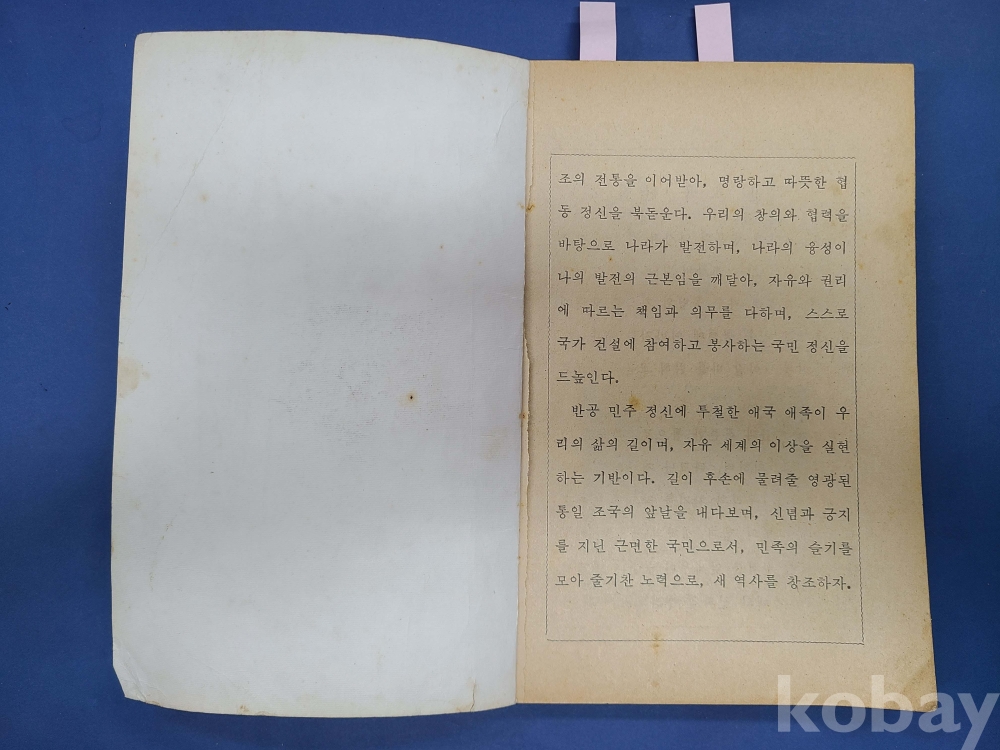 조의 전통을 이어받아, 명랑하고 따뜻한 협
동 정신을 북돋운다. 우리의 창의와 협력을
바탕으로 나라가 발전하며, 나라의 융성이
나의 발전의 근본임을 깨달아, 자유와 권리
에 따르는 책임과 의무를 다하며, 스스로
국가 건설에 참여하고 봉사하는 국민 정신을
드높인다.
반공 민주 정신에 투철한 애국 애족이 우
리의 삶의 길이며, 자유 세계의 이상을 실현
하는 기반이다. 길이 후손에 물려줄 영광된
통일 조국의 앞날을 내다보며, 신념과 긍지
를 지닌 근면한 국민으로서, 민족의 슬기를
모아 줄기찬 노력으로, 새 역사를 창조하자.
kobay